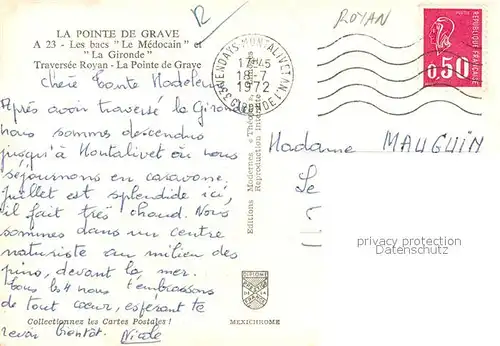 R
ROYAN
LA POINTE DE GRAVE
A 23 - Les bacs "Le Médocain" et
"La Gironde"
Traversée Royan - La Pointe de Grave
33 VENDAYS-MONTALIVET
GIRONDE
17H45
18-7
1972
REPUBLIQUE FRANÇAISE
0,50
Chère Tante Madeleine
Après avoir traversé la Gironde
nous sommes descendus
jusqu'à Montalivet où nous
séjournons en caravane.
Juillet est splendide ici,
il fait très chaud. Nous
sommes dans un centre
naturiste au milieu des
pins, devant la mer.
Tous les 4 nous t'embrassons
de tout cœur, espérant te
revoir bientôt. Nicole
Collectionnez les Cartes Postales !
Editions Modernes
Reproduction
MEXICHROME
Madame MAUGUIN
Le
privacy protection